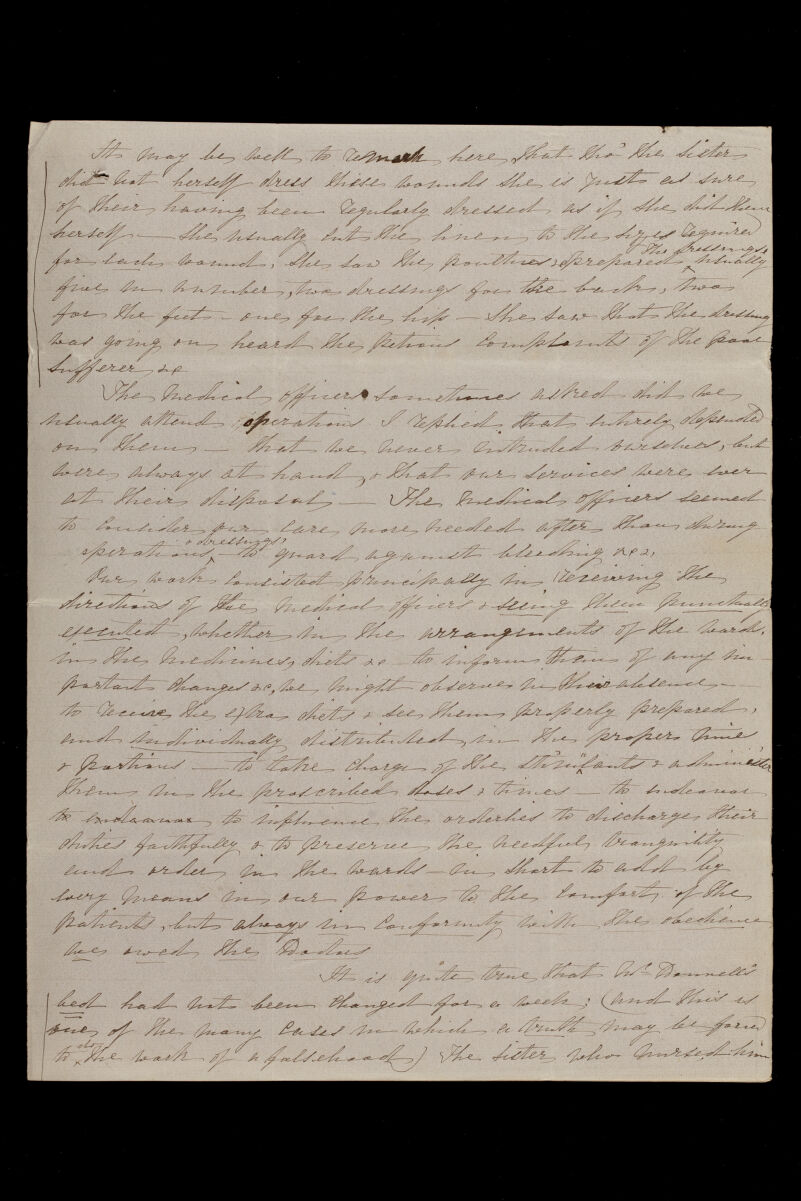 It may be well to remark here, that tho' the Sister
did not herself dress these wounds she is just as sure
of their having been regularly dressed as if she did them
herself — she usually cut the linen to the sizes required
for each wound. She saw the poultices prepared & the dressings, usually
five in number, two dressings for the back, two
for the feet — one for the hip — She saw that the dressing
was going on heard the piteous complaints of the poor
sufferer &c
The Medical officers sometimes asked did we
usually attend operations I replied that entirely depended
on them — that we never intruded ourselves, but
were always at hand, & that our services were ever
at their disposal — The Medical officers seemed
to consider our care more needed after than during
operations & dressings, — to guard against bleeding &c &c,
Our work consisted principally in receiving the
directions of the Medical officers & seeing them punctually
executed, whether in the arrangements of the wards,
in the Medicines, diets &c — to inform them of any im-
portant changes &c, we might observe in their absence —
to receive the extra diets & see them properly prepared,
and individually distributed, in the proper time
& portions — to take charge of the stimulants & administer
them in the prescribed doses & times — to endeavor
to endeavor to influence the orderlies to discharge their
duties faithfully & to preserve the needful tranquility
and order in the wards — in short to add by
every means in our power to the comfort of the
patients, but always in conformity with the obedience
we owed the Doctors
It is quite true that McDonnell's
bed had not been changed for a week; (and this is
one of the many cases in which a truth may be forced
to do the work of a falsehood) The Sister who nursed him